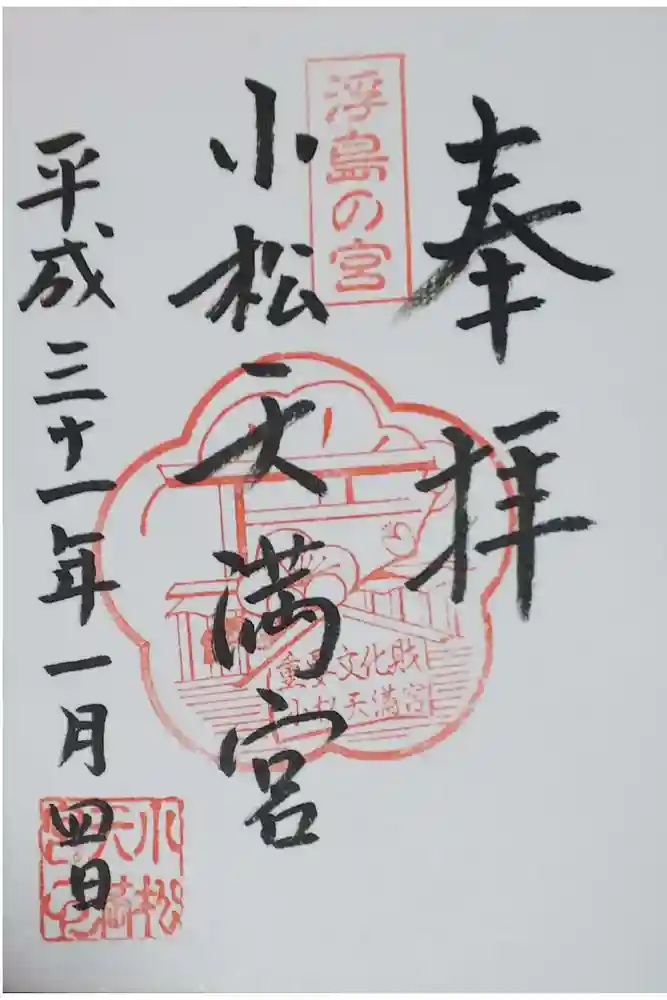 奉拝
浮島の宮
小松天満宮
重要文化財
小松天満宮
平成三十一年一月四日
小松
天満